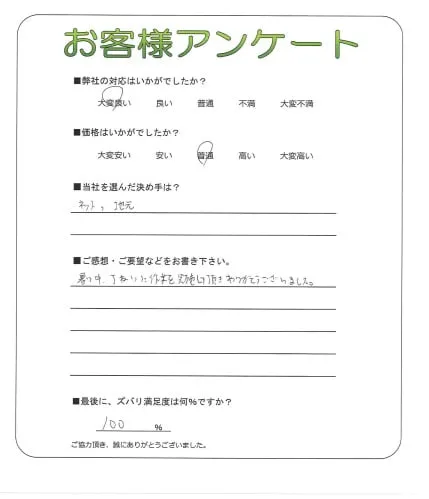 お客様アンケート
■弊社の対応はいかがでしたか？
大変良い 良い 普通 不満 大変不満
■価格はいかがでしたか？
大変安い 安い 普通 高い 大変高い
■当社を選んだ決め手は？
ネット、地元
■ご感想・ご要望などをお書き下さい。
暑い中、丁ねいに作業を実施頂きありがとうございました。
■最後に、ズバリ満足度は何%ですか？
100 %
ご協力頂き、誠にありがとうございました。